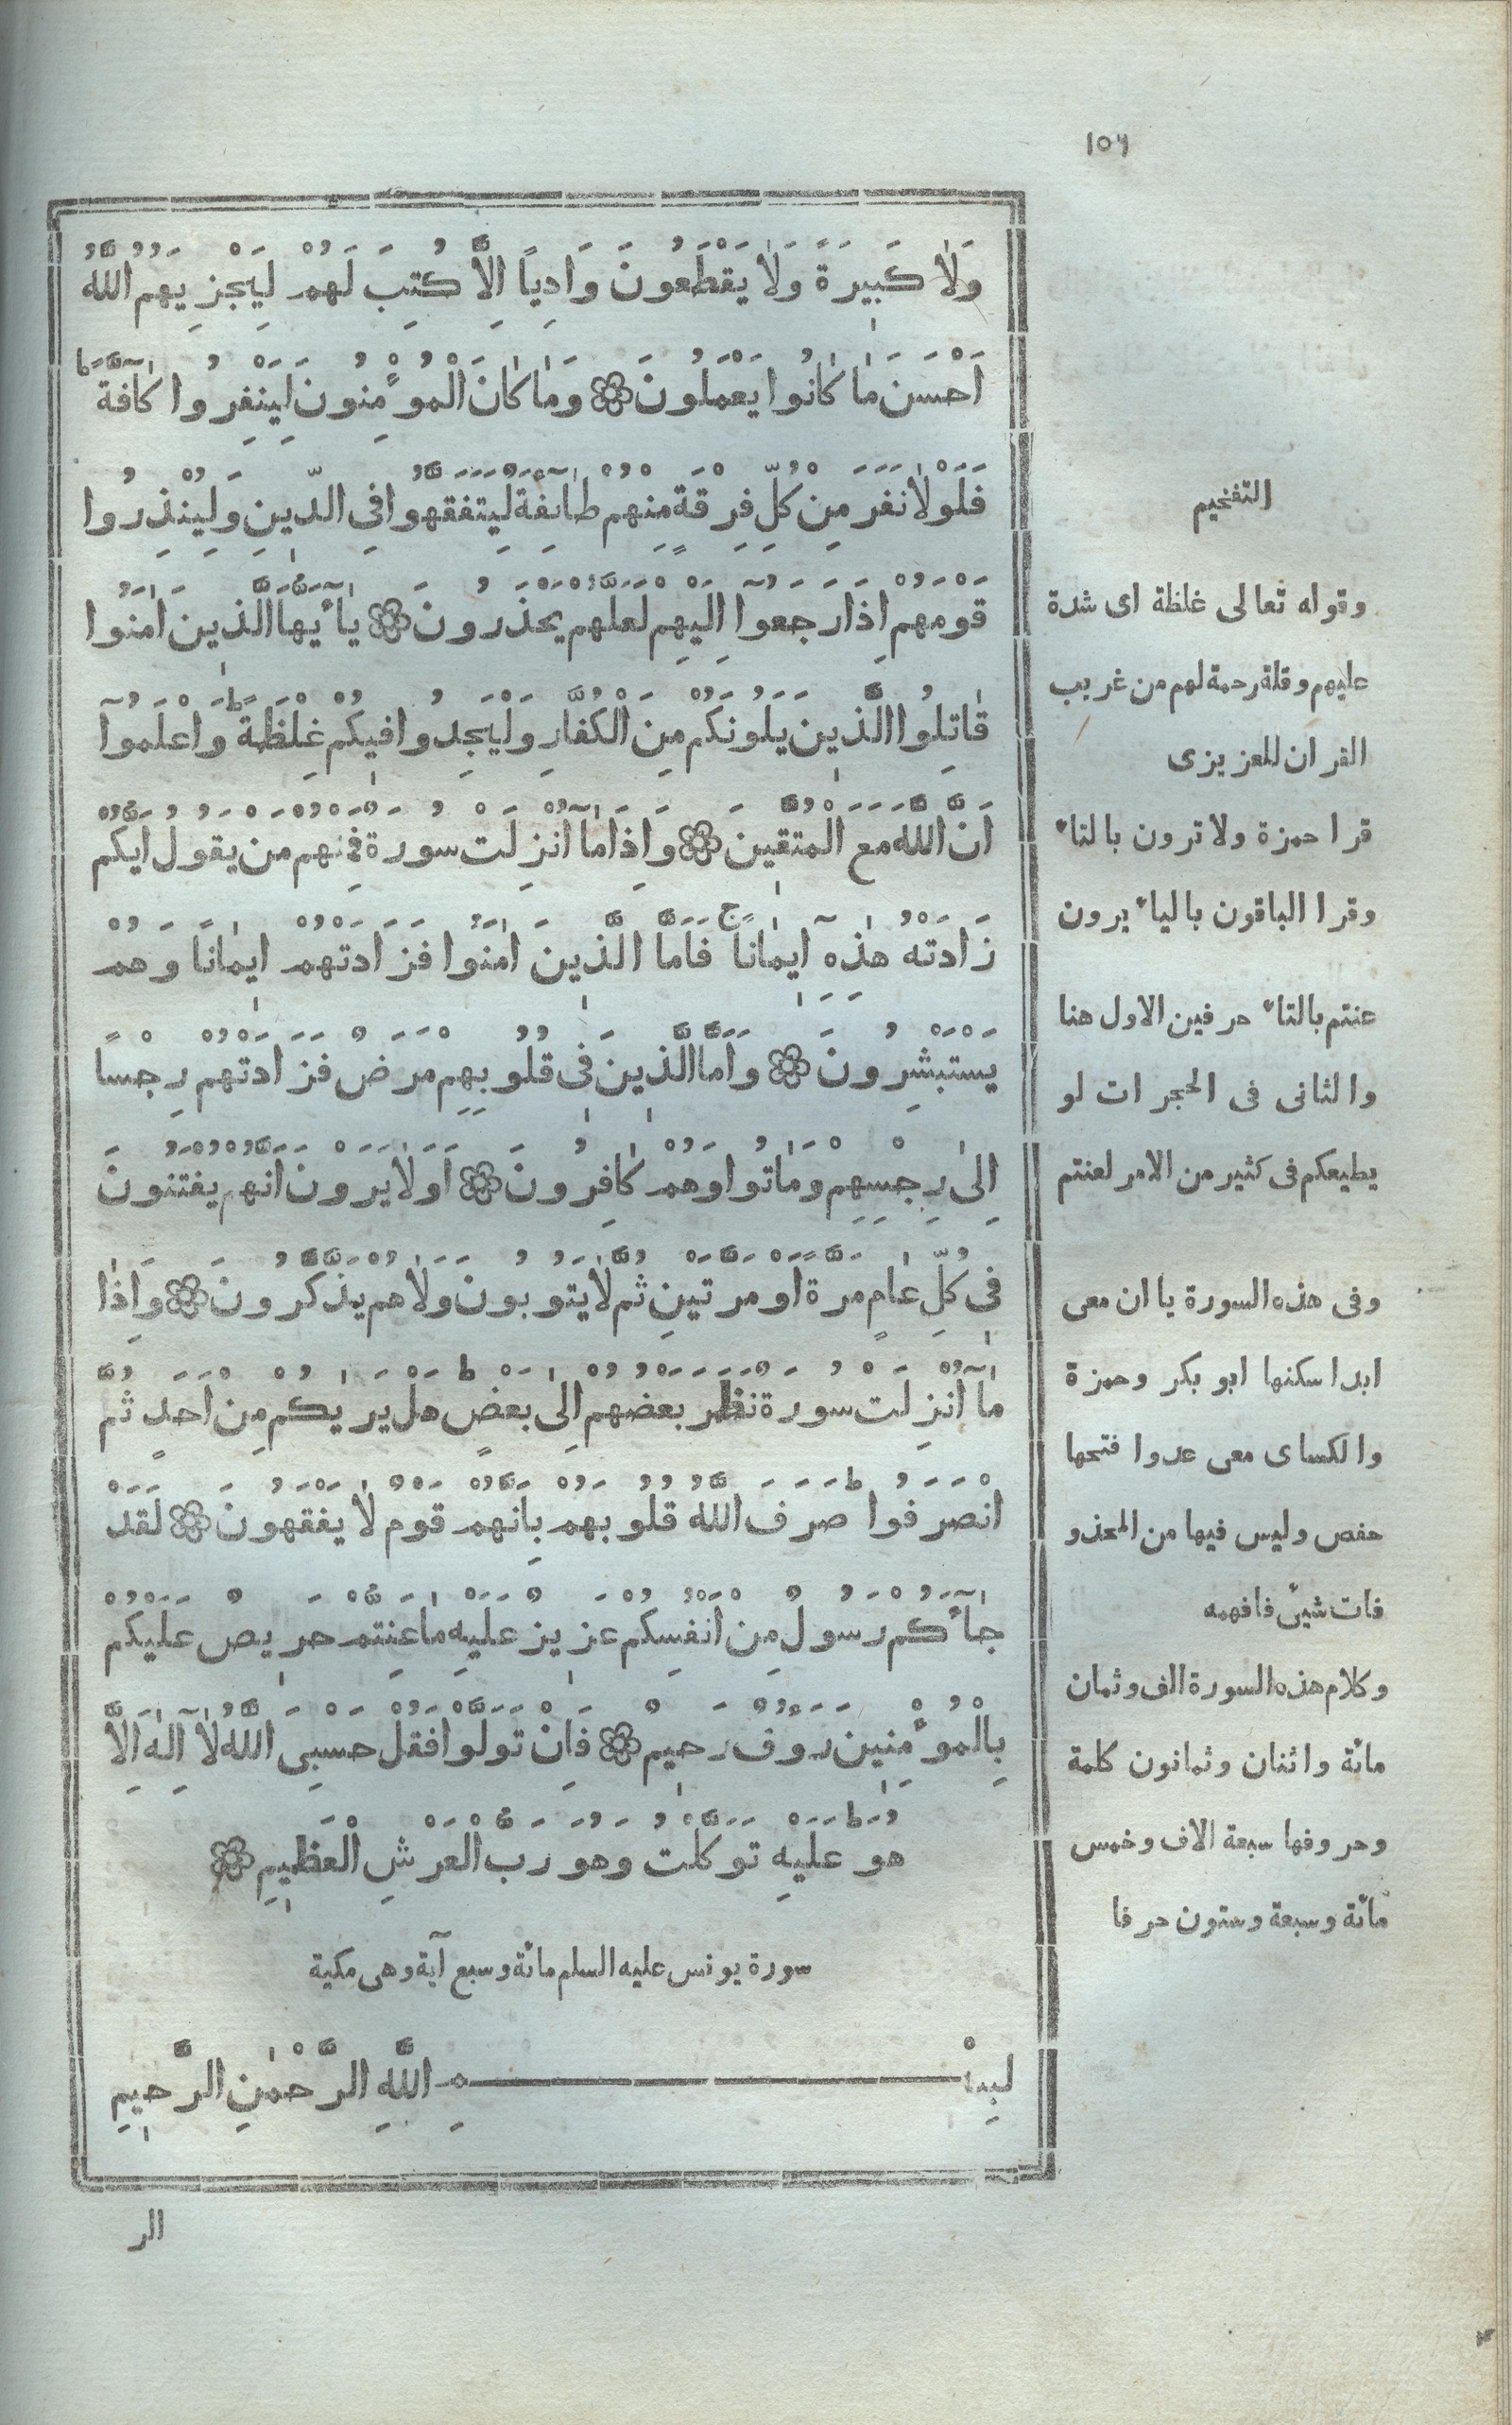 ١٥٦
وَلَا كَبِيرَةً وَلَا يَقْطَعُونَ وَادِيًا اِلَّا كُتِبَ لَهُمْ لِيَجْزِيَهُمُ اللّٰهُ
اَحْسَنَ مَا كَانُوا يَعْمَلُونَ ۞ وَمَا كَانَ الْمُؤْمِنُونَ لِيَنْفِرُوا كَآفَّةً ط
فَلَوْلَا نَفَرَ مِنْ كُلِّ فِرْقَةٍ مِنْهُمْ طَآئِفَةٌ لِيَتَفَقَّهُوا فِي الدِّينِ وَلِيُنْذِرُوا
قَوْمَهُمْ اِذَا رَجَعُوٓا اِلَيْهِمْ لَعَلَّهُمْ يَحْذَرُونَ ۞ يَآ اَيُّهَا الَّذِينَ اٰمَنُوا
قَاتِلُوا الَّذِينَ يَلُونَكُمْ مِنَ الْكُفَّارِ وَلْيَجِدُوا فِيكُمْ غِلْظَةً ط وَاعْلَمُوٓا
اَنَّ اللّٰهَ مَعَ الْمُتَّقِينَ ۞ وَاِذَا مَآ اُنْزِلَتْ سُورَةٌ فَمِنْهُمْ مَنْ يَقُولُ اَيُّكُمْ
زَادَتْهُ هٰذِهٖٓ اِيمَانًا ج فَاَمَّا الَّذِينَ اٰمَنُوا فَزَادَتْهُمْ اِيمَانًا وَهُمْ
يَسْتَبْشِرُونَ ۞ وَاَمَّا الَّذِينَ فِي قُلُوبِهِمْ مَرَضٌ فَزَادَتْهُمْ رِجْسًا
اِلَى رِجْسِهِمْ وَمَاتُوا وَهُمْ كَافِرُونَ ۞ اَوَلَا يَرَوْنَ اَنَّهُمْ يُفْتَنُونَ
فِي كُلِّ عَامٍ مَرَّةً اَوْ مَرَّتَيْنِ ثُمَّ لَا يَتُوبُونَ وَلَا هُمْ يَذَّكَّرُونَ ۞ وَاِذَا
مَآ اُنْزِلَتْ سُورَةٌ نَظَرَ بَعْضُهُمْ اِلَى بَعْضٍ ط هَلْ يَرٰيكُمْ مِنْ اَحَدٍ ثُمَّ
انْصَرَفُوا ط صَرَفَ اللّٰهُ قُلُوبَهُمْ بِاَنَّهُمْ قَوْمٌ لَا يَفْقَهُونَ ۞ لَقَدْ
جَآءَكُمْ رَسُولٌ مِنْ اَنْفُسِكُمْ عَزِيزٌ عَلَيْهِ مَا عَنِتُّمْ حَرِيصٌ عَلَيْكُمْ
بِالْمُؤْمِنِينَ رَؤُفٌ رَحِيمٌ ۞ فَاِنْ تَوَلَّوْا فَقُلْ حَسْبِيَ اللّٰهُ لَآ اِلٰهَ اِلَّا
هُوَ ط عَلَيْهِ تَوَكَّلْتُ وَهُوَ رَبُّ الْعَرْشِ الْعَظِيمِ ۞
سورة يونس عليه السلم مائة وسبع آية وهى مكية
بِسْمِ اللّٰهِ الرَّحْمٰنِ الرَّحِيمِ
الر
التفخيم
وقوله تعالى غلظة اى شدة
عليهم وقلة رحمة لهم من غريب
القران للعزيزى
قرا حمزة ولا ترون بالتاء
وقرا الباقون بالياء يرون
عنتم بالتاء حرفين الاول هنا
والثانى فى الحجرات لو
يطيعكم فى كثير من الامر لعنتم
وفى هذه السورة ياان معى
ابدا سكنها ابو بكر وحمزة
والكساى معى عدوا فتحها
حفص وليس فيها من المحذو
فات شىء فافهمه
وكلام هذه السورة الف وثمان
مائة واثنان وثمانون كلمة
وحروفها سبعة الاف وخمس
مائة وسبعة وستون حرفا